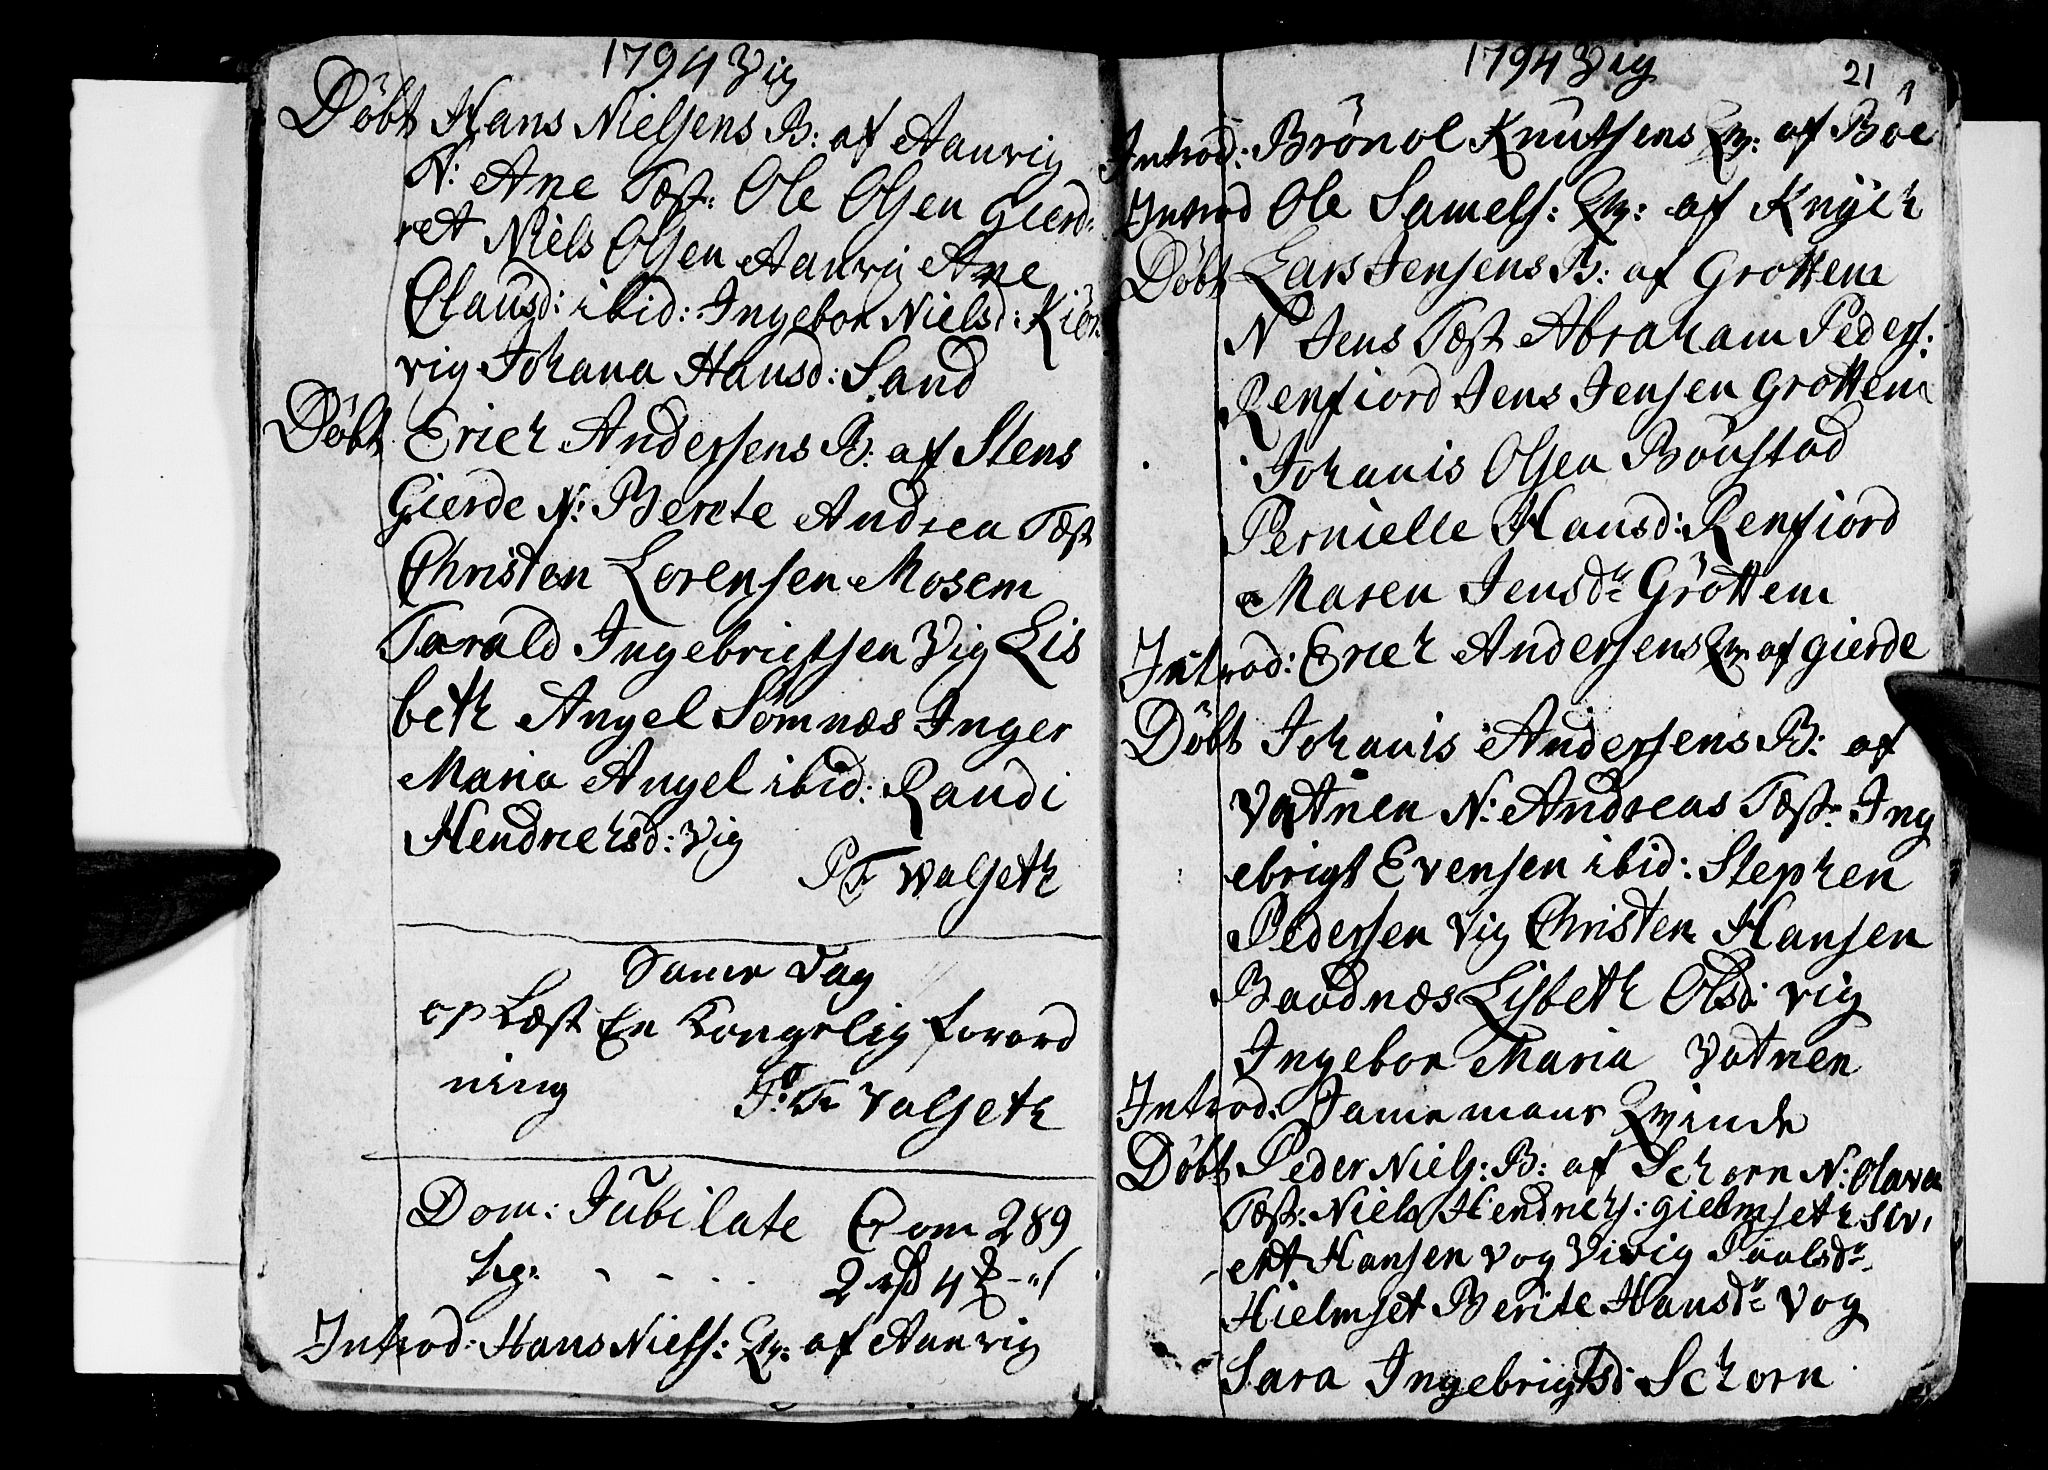 1794 Vig
Döbt Hans Nielsens B: af Aanvig
N: Ane Test: Ole Olsen Gierd-
ret Niels Olsen Aanvig Ane
Olausd: ibid: Ingebor Nielsd: Kiön
vig Johana Hansd: Sand
Döbt Erich Andersens B: af Stens
Gierde N: Berete Andrea Test
Christen Lorensen Mosem
Tarald Ingebrigtsen Vig Lis
beth Angel Sömnæs Inger
Maria Angel ibid: Randi
Hendrichsd: Vig
P T Valseth
Same Dag
op Læst En Kongelig forord
ning
P: T: Valseth
Dom: Jubilate Com 289
2 rd 4
Introd: Hans Niels: Qv: af Aanvig
1794 Vig
21
Introd: Brönol Knutsens Qv: af Böe
Introd Ole Samels: Qv: af Knych
Döbt Lars Jensens B: af Grottem
N Jens Test Abraham Peders:
Renfiord Jens Jensen Grottem
Johanis Olsen Bönstad
Pernielle Hansd: Renfiord
Maren Jensdr Gröttem
Introd: Erich Andersens Qv af gierde
Döbt Johanis Andersens B: af
Vatnen N: Andreas Test: Ing
ebrigt Evensen ibid: Stephen
Pedersen Vig Christen Hansen
Baadnæs Lisbeth Olsd: Vig
Ingebor Maria Vatnen
Introd: Same mans Qvinde
Döbt Peder Niels: B: af Schorn N: Olava
Test: Niels Hendrichs: gielmseth siv,
ert Hansen Vog Vivig Paalsdr
Hielmset Berite Hansdr Vog
Sara Ingebrigtsd: Schorn